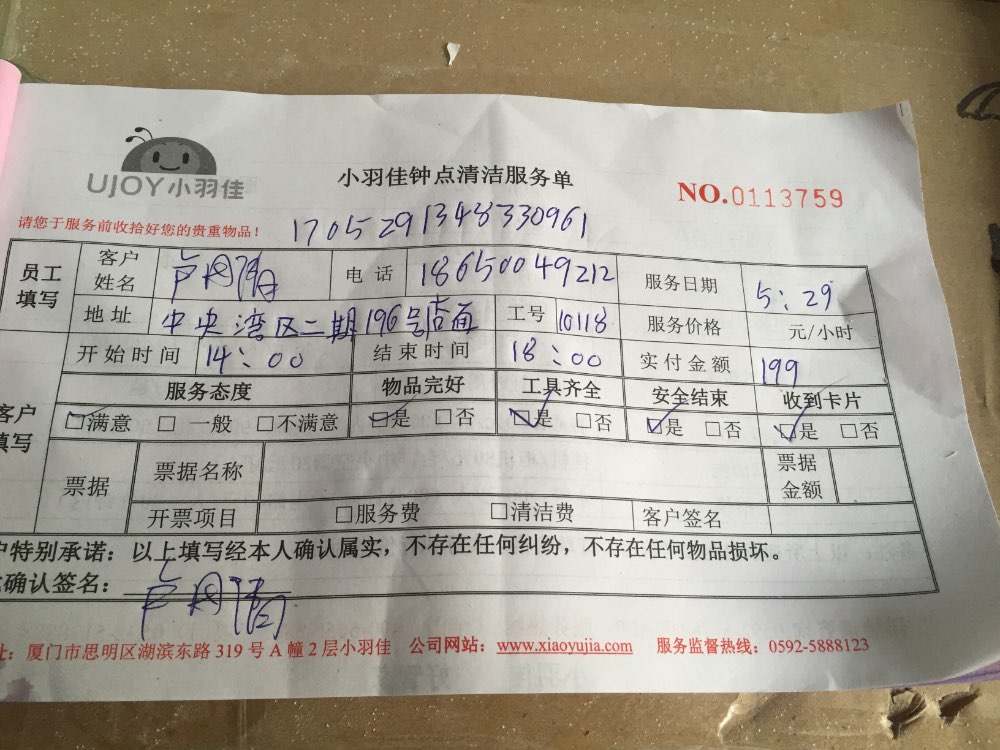 UJOY小羽佳
小羽佳钟点清洁服务单
NO.0113759
请您于服务前收拾好您的贵重物品！
1705291348330961
员工填写 客户姓名 电话 18650049212 服务日期 5:29
地址 中央湾区二期196号店面 工号 10118 服务价格 元/小时
开始时间 14:00 结束时间 18:00 实付金额 199
客户填写 服务态度 物品完好 工具齐全 安全结束 收到卡片
☑满意 □ 一般 □不满意 ☑是 □否 ☑是 □否 ☑是 □否 ☑是 □否
票据 票据名称 票据金额
开票项目 □服务费 □清洁费 客户签名
户特别承诺：以上填写经本人确认属实，不存在任何纠纷，不存在任何物品损坏。
确认签名：
址：厦门市思明区湖滨东路 319 号 A 幢 2 层小羽佳 公司网站：www.xiaoyujia.com 服务监督热线：0592-5888123